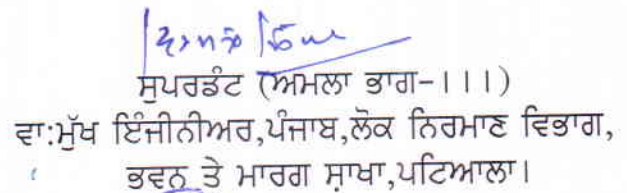 ਸੁਪਰਡੰਟ (ਅਮਲਾ ਭਾਗ-।।।)
ਵਾ:ਮੁੱਖ ਇੰਜੀਨੀਅਰ,ਪੰਜਾਬ,ਲੋਕ ਨਿਰਮਾਣ ਵਿਭਾਗ,
ਭਵਨ ਤੇ ਮਾਰਗ ਸ਼ਾਖਾ,ਪਟਿਆਲਾ।